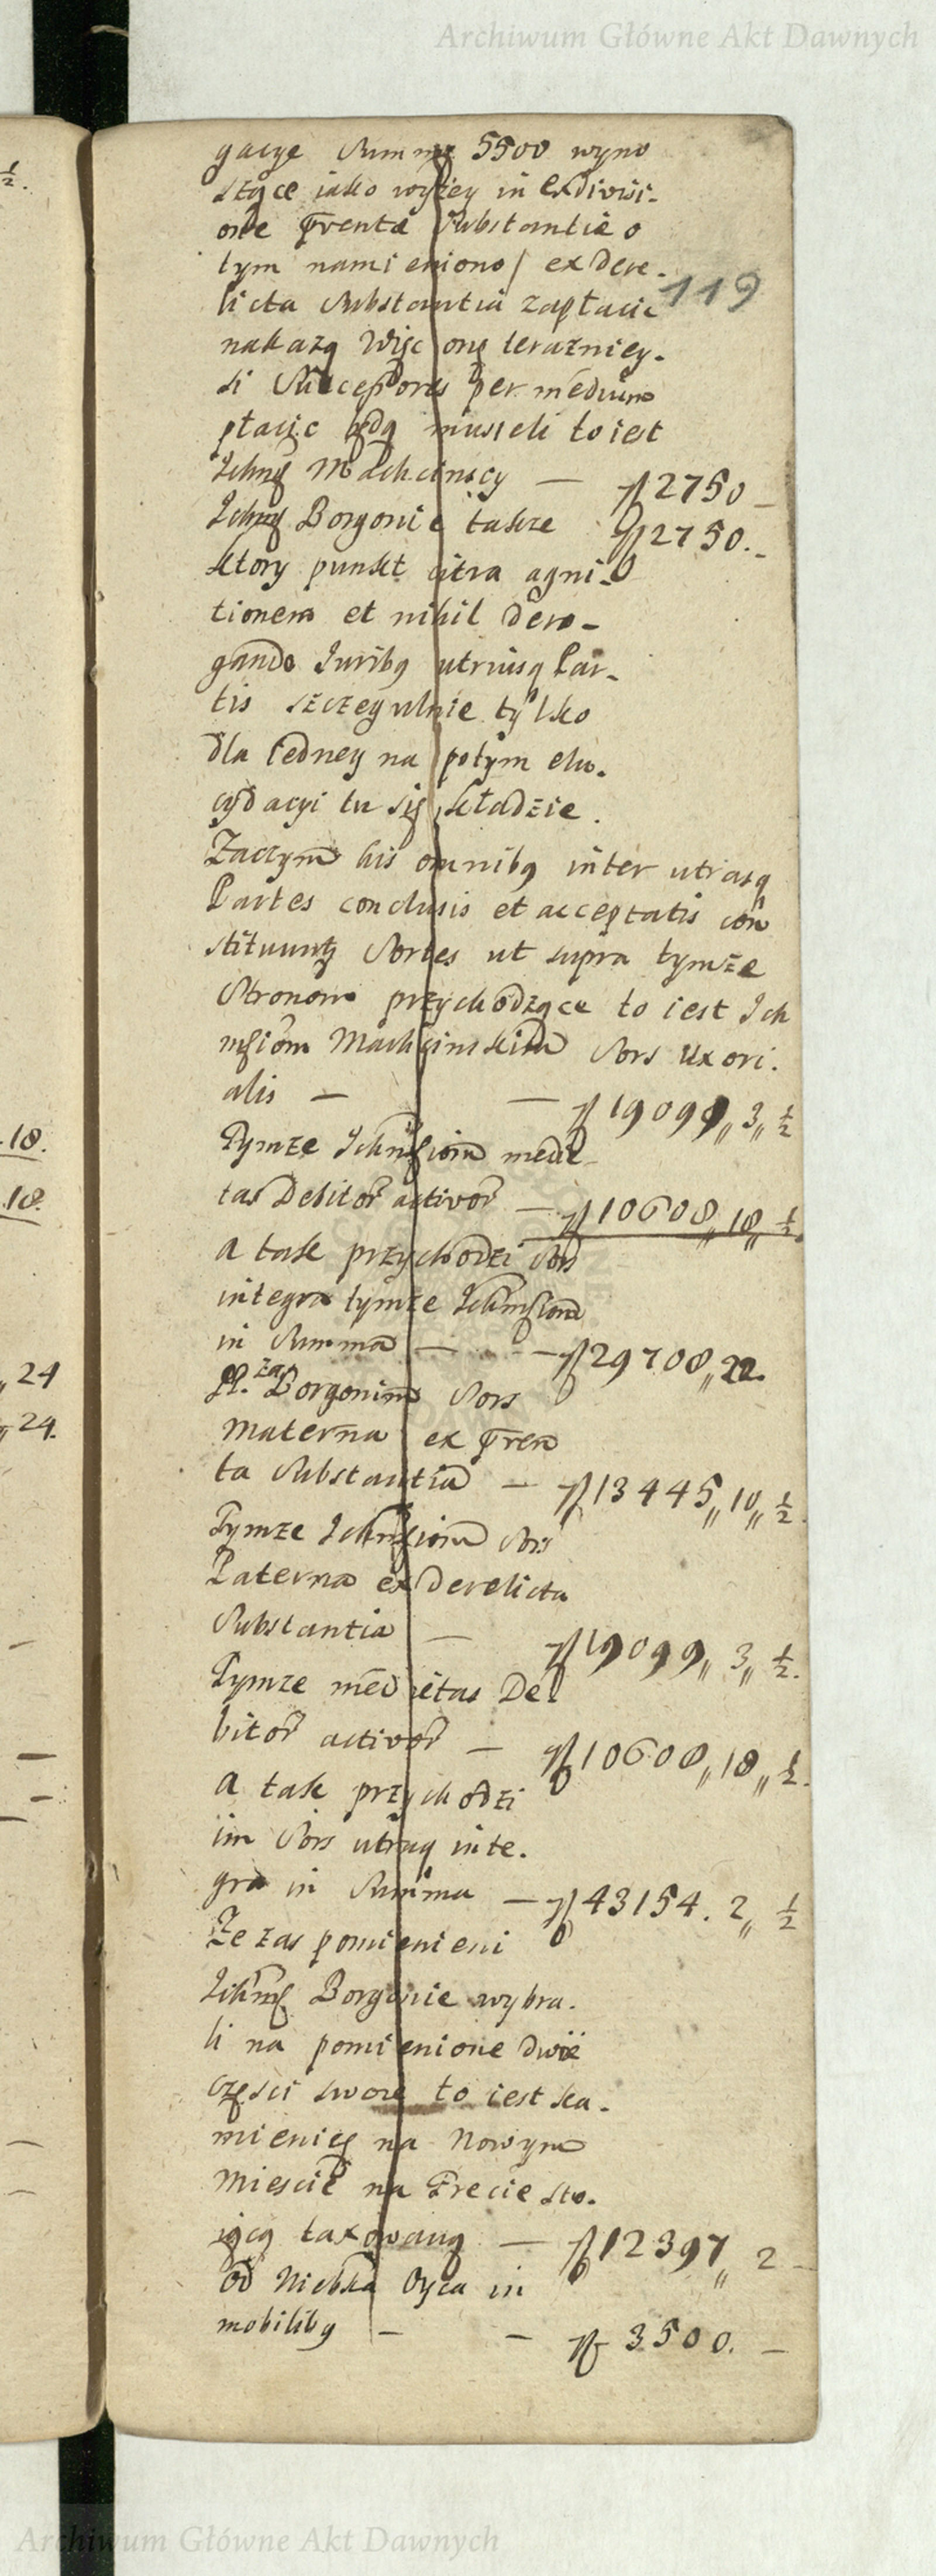 Archiwum Główne Akt Dawnych
gacye Summę 5500 wyno
szące iako wyżey in exdivisi-
one Prentæ Substantiæ o
tym namieniono/ ex dere-
119
licta Substantia zapłacic
nakazą Więc onę terazniey-
si Successores per medium
płacic będą musieli to iest
Ichmę Machcinscy — fl 2750 –
Ichmę Borgonie takze fl 2750. –
ktory punkt citra agni-
tionem et nihil dero-
gando Juribq utriusq Par-
tis szczegulnie tylko
dla iedney na potym elu-
cydacyi tu się kładzie.
Zaczym his omnibq inter utrasq
Partes conclusis et acceptatis con
stituuntq Sortes ut supra tymze
Stronom przychodzące to iest Ich
msciom Machcinskim Sors Uxori-
alis — — fl 19099„ 3„ ½
Tymze Ichmsciom medie
tas Debitor activor — fl 10608„ 18„ ½.
A tak przychodzi Sors
integra tymze Ichmsciom
in Summa — — fl 29708„ 22.
PP. zas Borgoniom Sors
Materna ex Pren
ta Substantia — fl 13445„ 10„ ½.
Tymze Ichmsciom Sors
Paterna ex derelicta
Substantia — fl 19099„ 3„ ½.
Tymze medietas De
bitor activor — fl 10608„ 18„ ½.
A tak przychodzi
im Sors utraq inte-
gra in Summa — fl 43154. 2„ ½
Ze zas pomienieni
Ichmę Borgonie wybra-
li na pomienione dwie
częsci swoie to iest ka-
mienicę na Nowym
Miescie na Frecie sto-
iącą taxowaną — fl 12397„ 2 –
Od Niebka Oyca in
mobilibq — — fl 3500. —
½.
.18.
.18.
„ 24
„ 24.
Archiwum Główne Akt Dawnych